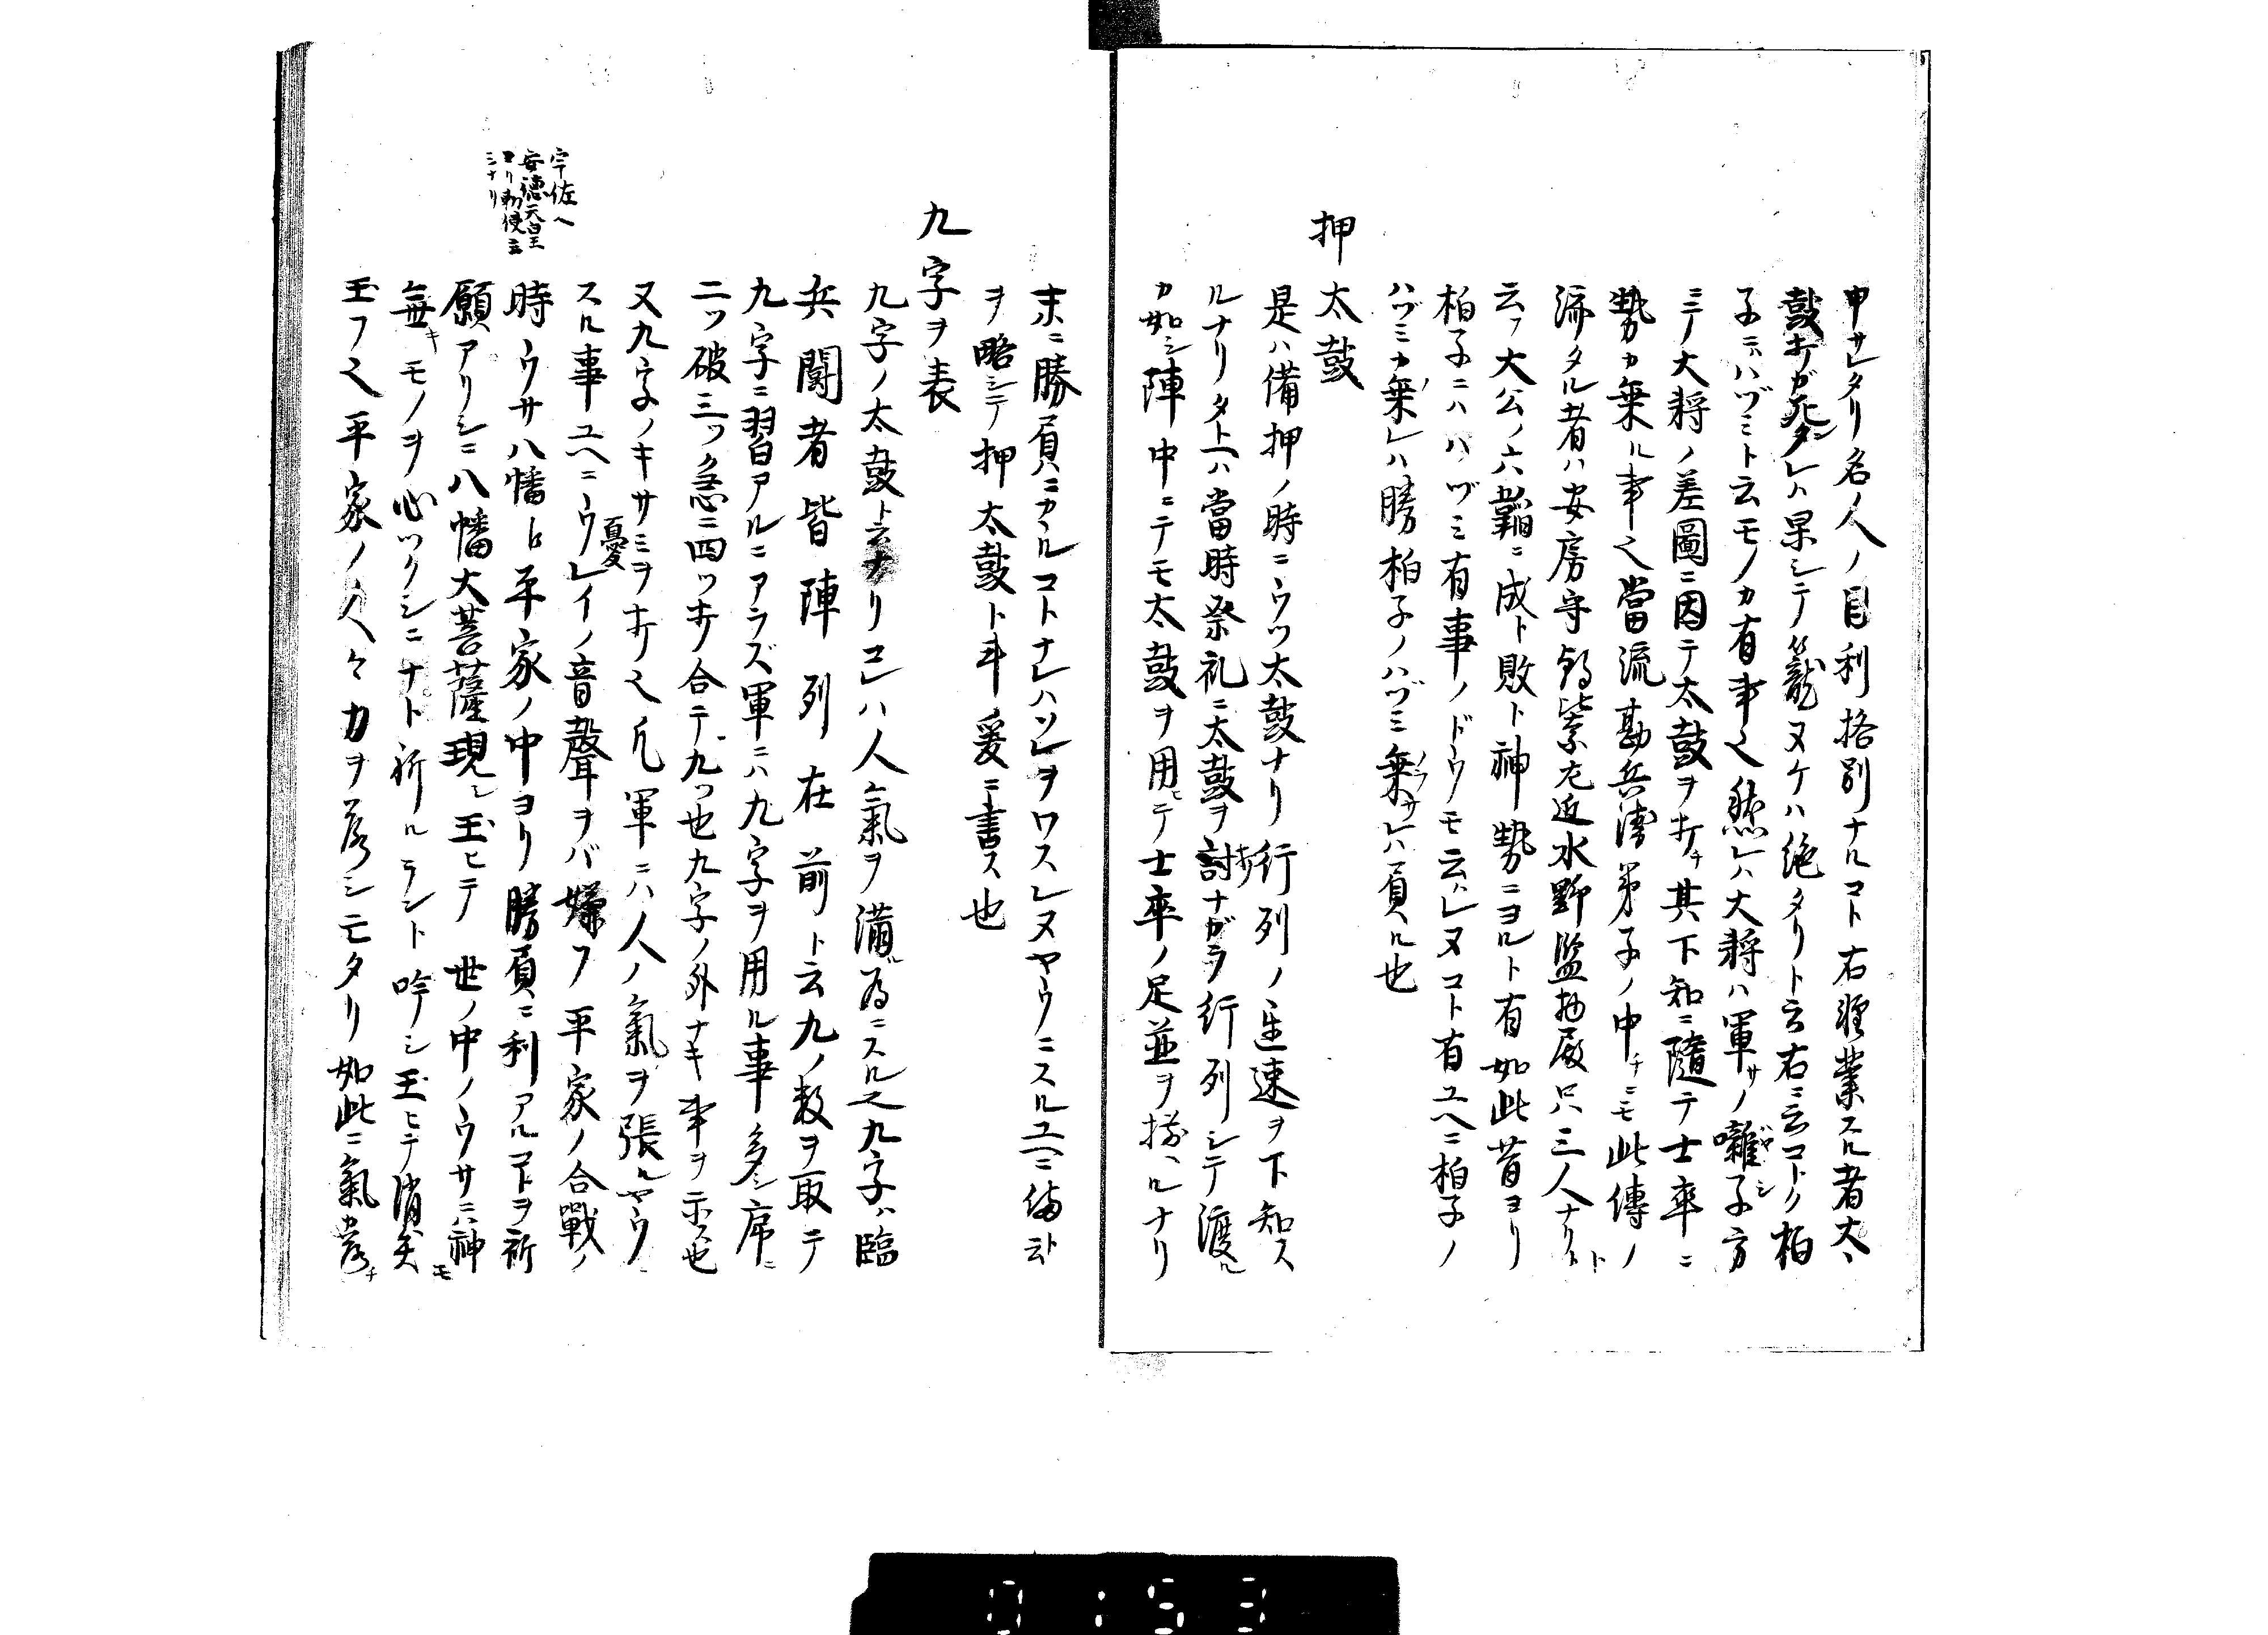 申サレタリ名人ノ目利格別ナルコト右軽業スル者太
鼓打ガ死タレハ果シテ籠ヌケハ絶タリト云右ニ云コトク柏
子ニハヅミト云モノカ有事也然レハ大将ハ軍サノ囃子方
ニテ大将ノ差圖ニ因テ太鼓ヲ打チ其下知ニ随テ士卒ニ
勢カ乗ル事也當流勘兵衛弟子ノ中チニモ此傳ノ
済タル者ハ安房守 左近水野監物殿只三人ナリト
云フ大公ノ六韜ニ成ト敗ト神勢ニヨルト有如此昔ヨリ
柏子ニハハヅミ有事ノドウモ云ハレヌコト有ユヘニ柏子ノ
ハヅミカ乗レハ勝柏子ノハヅミ乗サレハ負ル也
押太鼓
是ハ備押ノ時ニウツ太鼓ナリ行列ノ遅速ヲ下知ス
ルナリタトヘハ當時祭礼ニ太鼓ヲ討ナガラ行列シテ渡ル
カ如シ陣中ニテモ太鼓ヲ用ヒテ士卒ノ足並ヲ揃ルナリ
末ニ勝負ニカヽルコトナレハソレヲワスレヌヤウニスルユヘニ備ト云
ヲ略シテ押太鼓ト斗爰ニ書ス也
九字ヲ表
九字ノ太鼓ト云ナリコレハ人氣ヲ満ル為ニスル也九字ハ臨
兵闘者皆陣列在前ト云九ノ数ヲ取テ
九字ニ習アルニアラズ軍ニハ九字ヲ用ル事多シ序ニ
二ツ破三ツ急ニ四ツ打合テ九ツ也九字ノ外ナキ事ヲ示ス也
又九字ノキサミヲ打也凡軍ニハ人ノ氣ヲ張ルヤウニ
スル事ユヘニウレイノ音聲ヲバ嫌フ平家ノ合戰ノ
憂
時ウサ八幡ヘ平家ノ中ヨリ勝負ニ利アルコトヲ祈
願アリシニ八幡大菩薩現シ玉ヒテ世ノ中ノウサニハ神モ
無キモノヲ心ツクシニナト祈ルラント吟シ玉ヒテ消失
玉フ也平家ノ人々力ヲ落シニモタリ如此ニ氣落チ
宇佐ヘ
安徳天皇
ヨリ勅使云
ミナリ